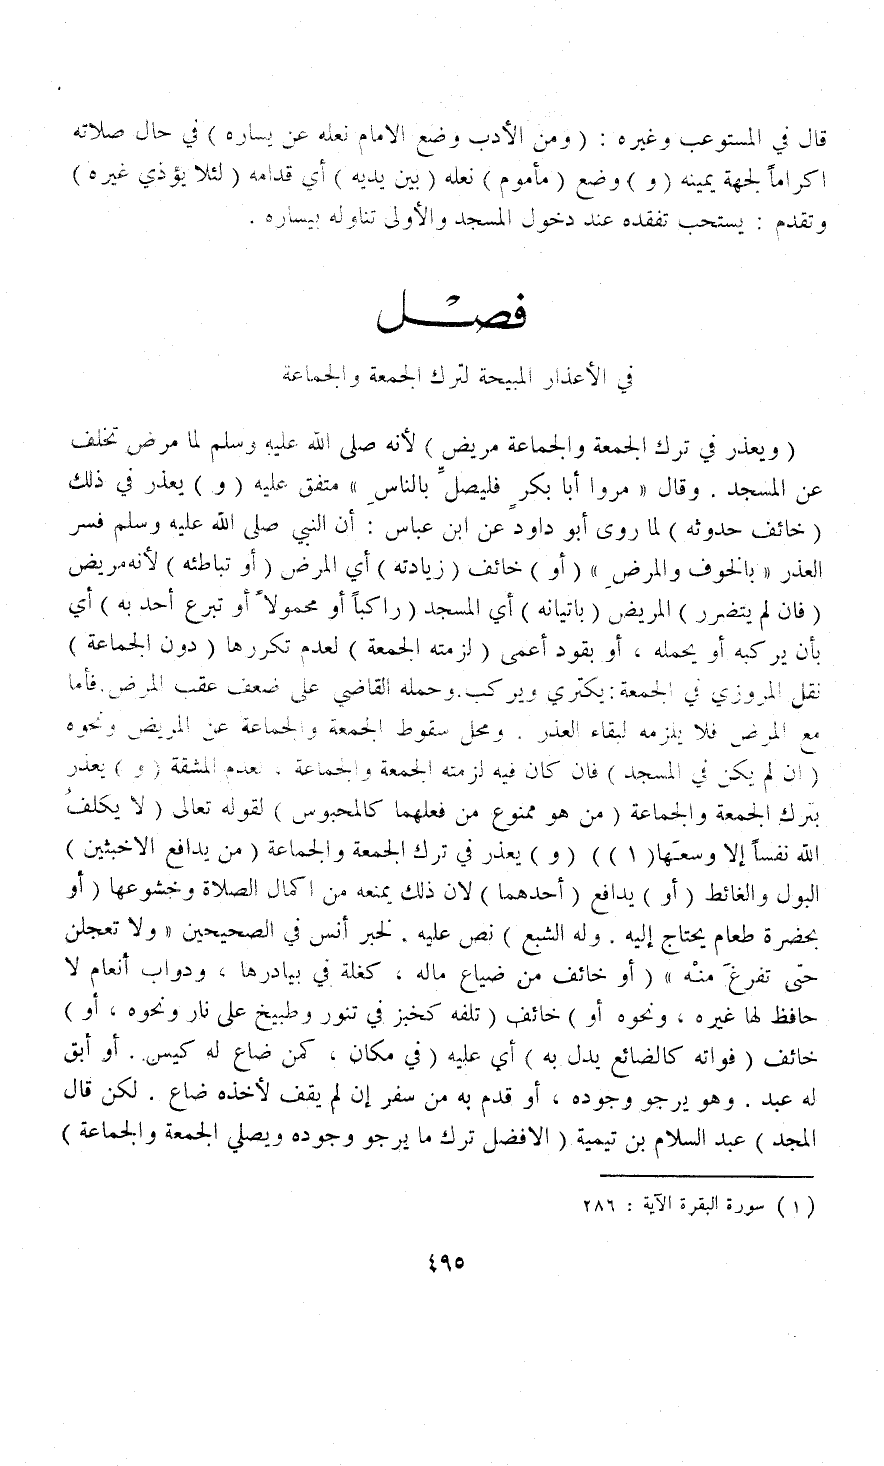 قال في المستوعب وغيره : ( ومن الأدب وضع الامام نعله عن يساره ) في حال صلاته
اكراماً لجهة يمينه ( و ) وضع ( مأموم ) نعله ( بين يديه ) أي قدامه ( لئلا يؤذي غيره )
وتقدم : يستحب تفقده عند دخول المسجد والأولى تناوله بيساره .
فصل
في الأعذار المبيحة لترك الجمعة والجماعة
( ويعذر في ترك الجمعة والجماعة مريض ) لأنه صلى الله عليه وسلم لما مرض تخلف
عن المسجد . وقال « مروا أبا بكرٍ فليصلِّ بالناسِ » متفق عليه ( و ) يعذر في ذلك
( خائف حدوثه ) لما روى أبو داود عن ابن عباس : أن النبي صلى الله عليه وسلم فسر
العذر « بالخوف والمرضِ » ( أو ) خائف ( زيادته ) أي المرض ( أو تباطئه ) لأنه مريض
( فان لم يتضرر ) المريض ( باتيانه ) أي المسجد ( راكباً أو محمولاً أو تبرع أحد به ) أي
بأن يركبه أو يحمله ، أو بقود أعمى ( لزمته الجمعة ) لعدم تكررها ( دون الجماعة )
نقل المروزي في الجمعة : يكتري ويركب . وحمله القاضي على ضعف عقب المرض . فأما
مع المرض فلا يلزمه لبقاء العذر . ومحل سقوط الجمعة والجماعة عن المريض ونحوه
( ان لم يكن في المسجد ) فان كان فيه لزمته الجمعة والجماعة ، لعدم المشقة ( و ) يعذر
بترك الجمعة والجماعة ( من هو ممنوع من فعلهما كالمحبوس ) لقوله تعالى ( لا يكلفُ
الله نفساً إلا وسعَها( ١ ) ) ( و ) يعذر في ترك الجمعة والجماعة ( من يدافع الاخبثين )
البول والغائط ( أو ) يدافع ( أحدهما ) لان ذلك يمنعه من اكمال الصلاة وخشوعها ( أو
بحضرة طعام يحتاج إليه . وله الشبع ) نص عليه . لخبر أنس في الصحيحين « ولا تعجلن
حتى تفرغَ منْه » ( أو خائف من ضياع ماله ، كغلة في بيادرها ، ودواب أنعام لا
حافظ لها غيره ، ونحوه أو ) خائف ( تلفه كخبز في تنور وطبيخ على نار ونحوه ، أو )
خائف ( فواته كالضائع يدل به ) أي عليه ( في مكان ، كمن ضاع له كيس . أو أبق
له عبد . وهو يرجو وجوده ، أو قدم به من سفر إن لم يقف لأخذه ضاع . لكن قال
المجد ) عبد السلام بن تيمية ( الافضل ترك ما يرجو وجوده ويصلي الجمعة والجماعة )
( ١ ) سورة البقرة الآية : ٢٨٦
٤٩٥